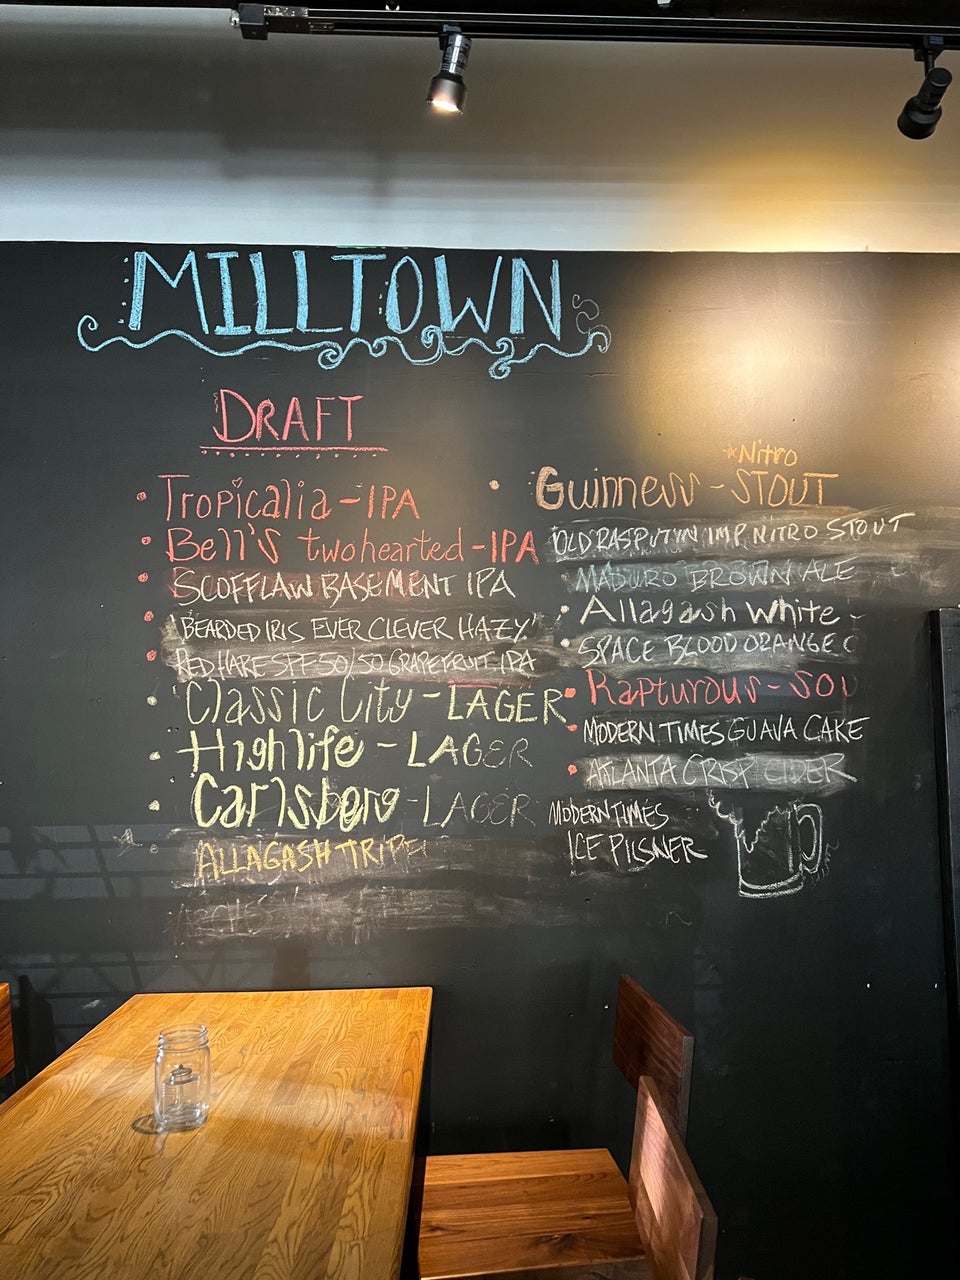 MILLTOWN
DRAFT
Tropicalia - IPA
Bell's twohearted - IPA
SCOFFLAW BASEMENT IPA
'BEARDED IRIS EVER CLEVER HAZY'
RED HARE SPF 50/50 GRAPEFRUIT IPA
Classic City - LAGER
Highlife - LAGER
Carlsberg - LAGER
ALLAGASH TRIPEL
*Nitro
Guinness - STOUT
OLD RASPUTYN IMP. NITRO STOUT
MADURO BROWN ALE
Allagash White -
SPACE BLOOD ORANGE C
Rapturous - SOU
MODERN TIMES GUAVA CAKE
ATLANTA CRISP CIDER
MODERN TIMES
ICE PILSNER